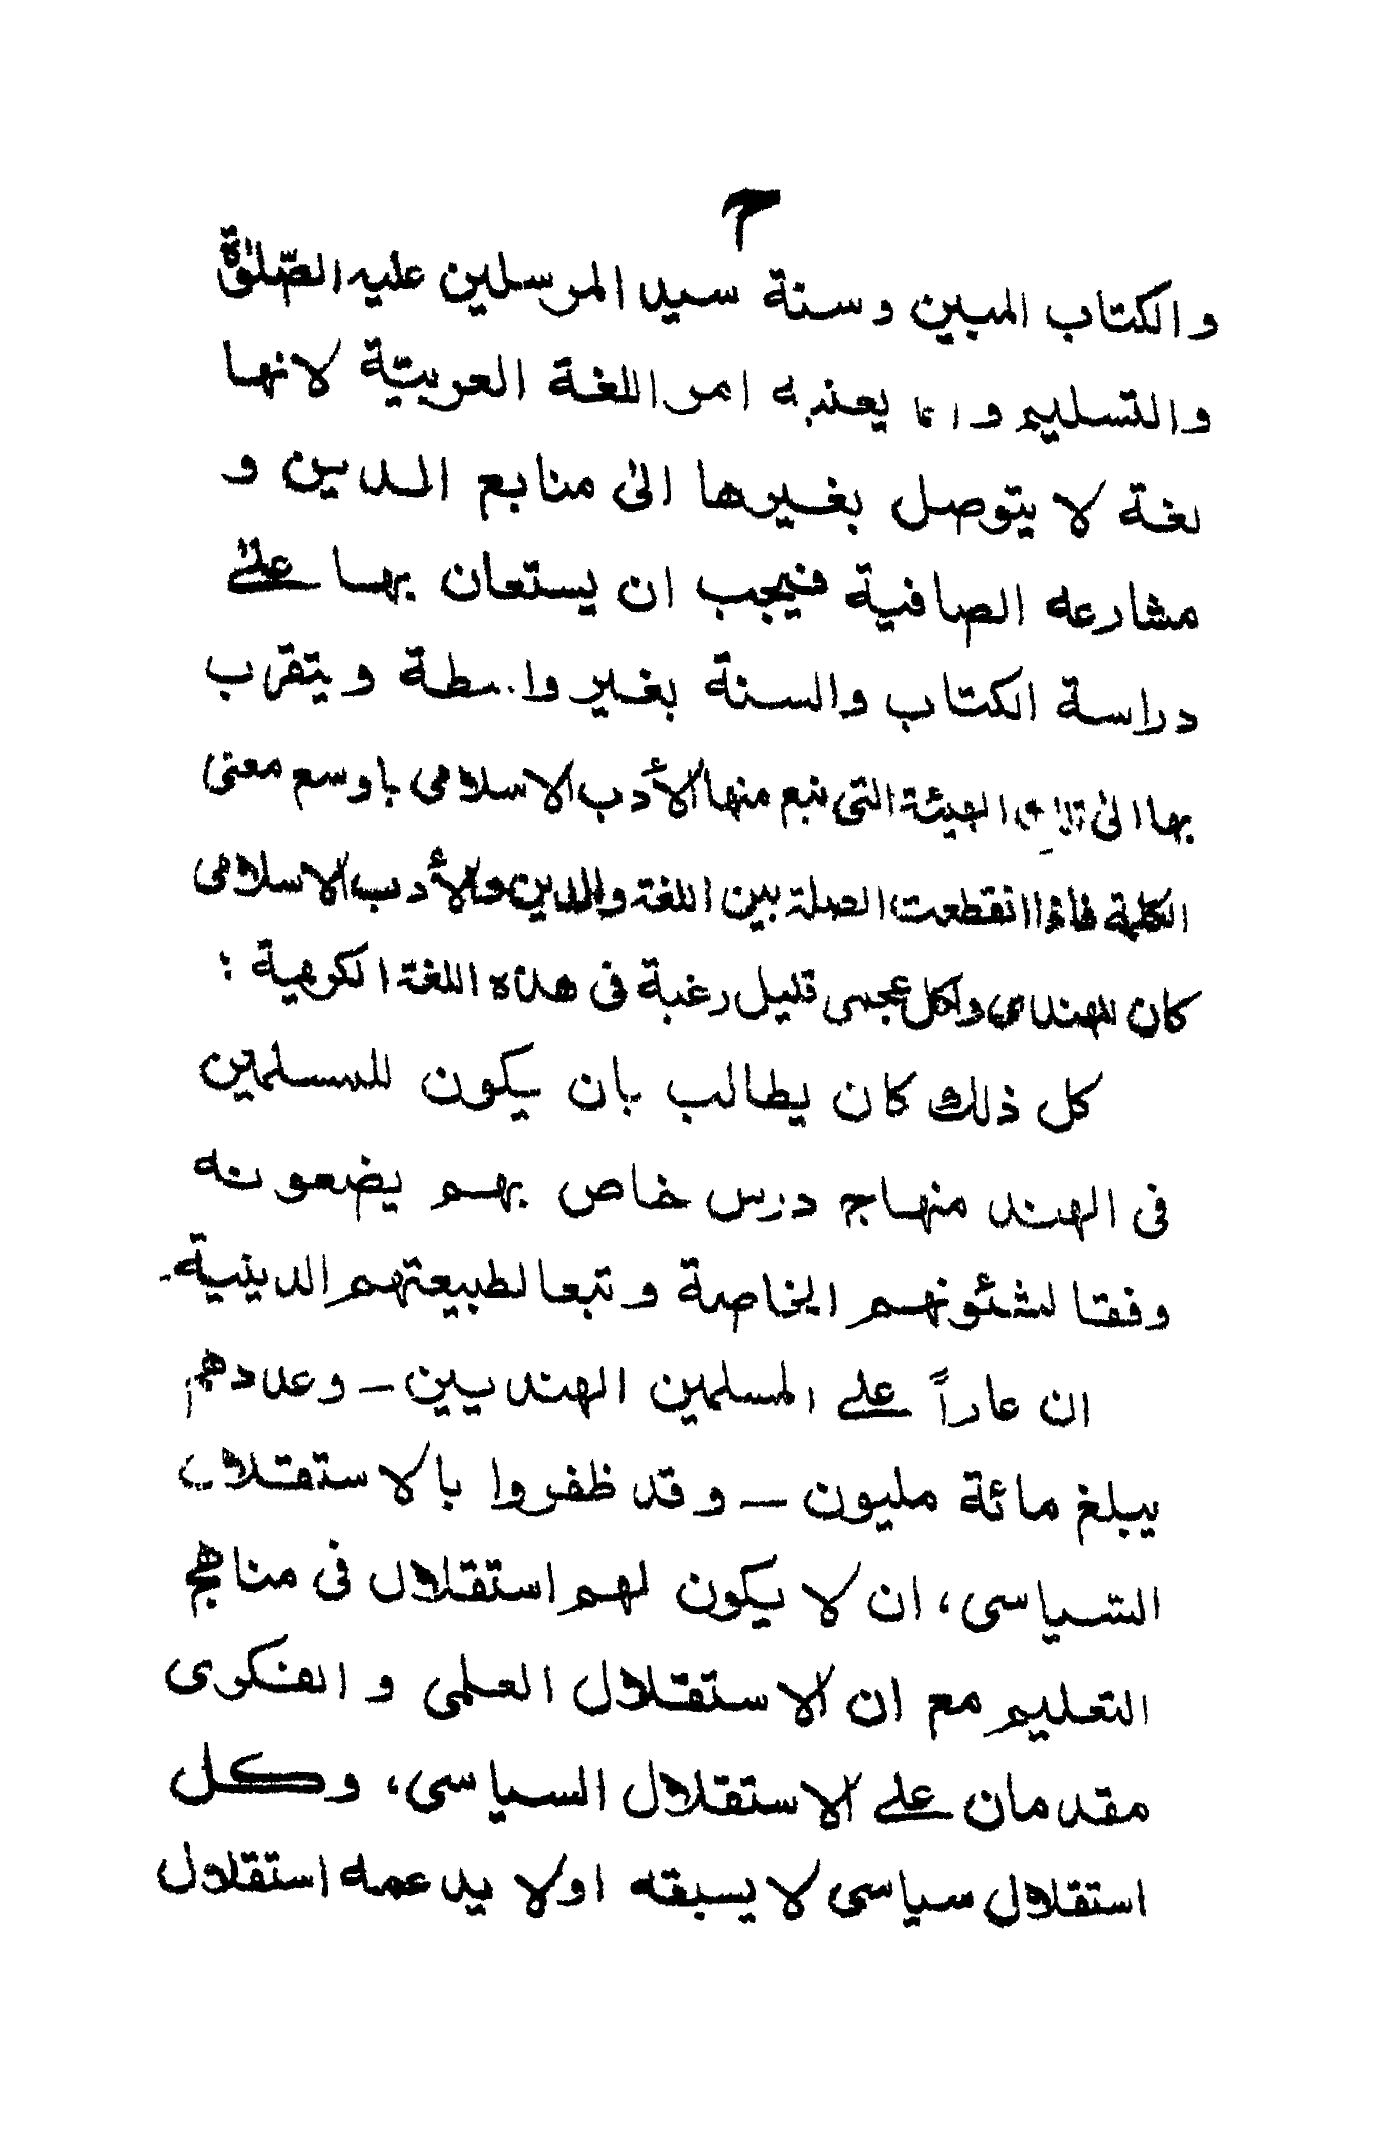 م
والكتاب المبين وسنة سيد المرسلين عليه الصّلوٰة
والتسليم و انما يعنيه امر اللغة العربيّة لانها
لغة لا يتوصل بغيرها الى منابع الدين و
مشارعه الصافية فيجب ان يستعان بها على
دراسة الكتاب والسنة بغير واسطة ويتقرب
بها الى تلك الهيئة التى نبع منها الأدب الاسلامى باوسع معنى
الكلمة فاذا انقطعت الصلة بين اللغة والدين والأدب الاسلامى
كان للهندى ولكل عجمى قليل رغبة فى هذه اللغة الكريهة :
كل ذلك كان يطالب بان يكون للمسلمين
فى الهند منهاج درس خاص بهم يضعونه
وفقا لشئونهم الخاصة وتبعا لطبيعتهم الدينية.
ان عاراً على المسلمين الهنديين ــ وعددهم
يبلغ مائة مليون ــ وقد ظفروا بالاستقلال
السياسى، ان لا يكون لهم استقلال فى مناهج
التعليم مع ان الاستقلال العلمى و الفكرى
مقدمان على الاستقلال السياسى، وكل
استقلال سياسى لا يسبقه اولا يدعمه استقلال